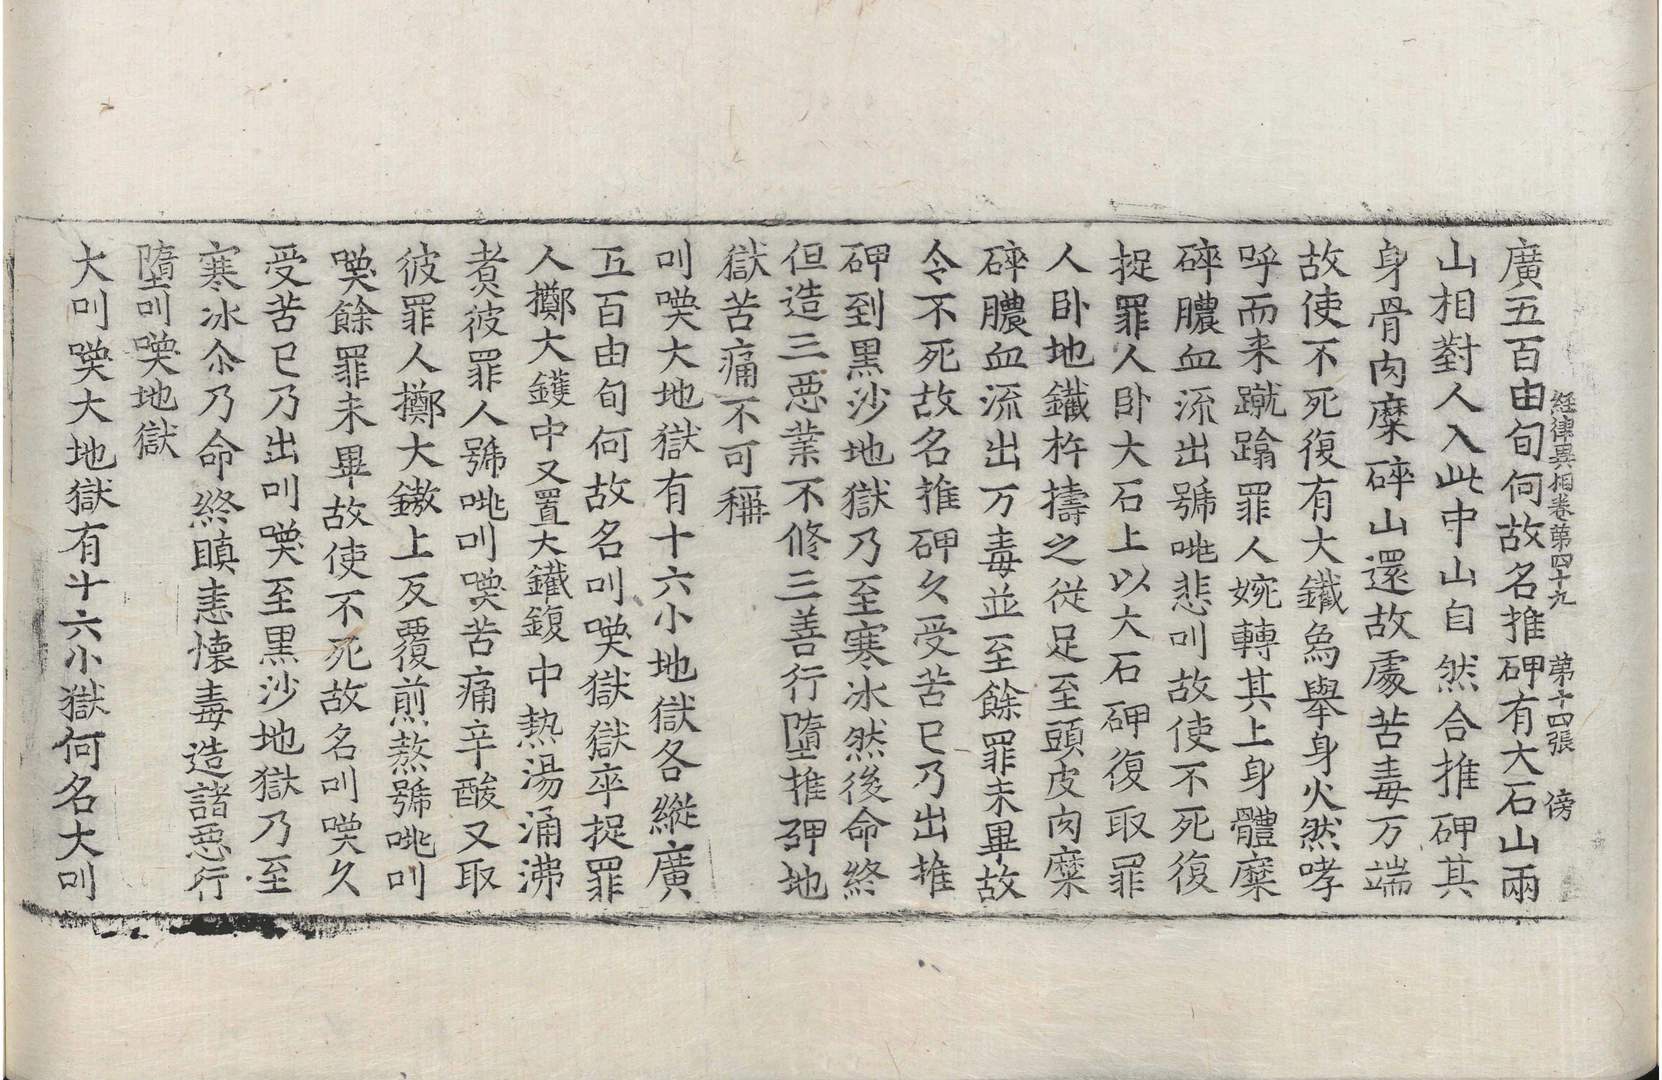 經律異相卷第四十九　第十四張　傍
廣五百由旬何故名推砰有大石山兩
山相對人入此中山自然合推砰其
身骨肉糜碎山還故處苦毒万端
故使不死復有大鐵烏舉身火然哮
呼而来蹴蹹罪人婉轉其上身體糜
碎膿血流出號咷悲叫故使不死復
捉罪人卧大石上以大石砰復取罪
人卧地鐵杵擣之從足至頭皮肉糜
碎膿血流出万毒並至餘罪未畢故
令不死故名推砰久受苦已乃出推
砰到黑沙地獄乃至寒冰然後命終
但造三惡業不修三善行墮推砰地
獄苦痛不可稱
叫喚大地獄有十六小地獄各縱廣
五百由旬何故名叫喚獄獄卒捉罪
人擲大鑊中又置大鐵鍑中熱湯涌沸
煑彼罪人號咷叫喚苦痛辛酸又取
彼罪人擲大鏊上反覆煎熬號咷叫
喚餘罪未畢故使不死故名叫喚久
受苦已乃出叫喚至黑沙地獄乃至
寒冰尒乃命終瞋恚懷毒造諸惡行
墮叫喚地獄
大叫喚大地獄有十六小獄何名大叫